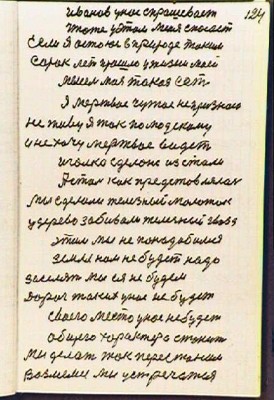 124
Иванов у нас спрашевает
чтоте устам меня спасает
семя я остоюс в природе таким
сорок лет прошло у жизни моей
мысль моя такая есть
Я мертвое чужое непризнаю
не живу я так по людскому
и не хочу мертвое видеть
иголка сделона из стали
Я стал как предстовлялас
мы сделали железный молоток
у дерево забивали железный гвозд
этим мы не понадобился
земля нам не будет надо
заселят мы ея не будем
дорог таких у нас не будет
своего место у нас небудет
общего характера станит
мы делат так перестаним
возмемся мы устречатся